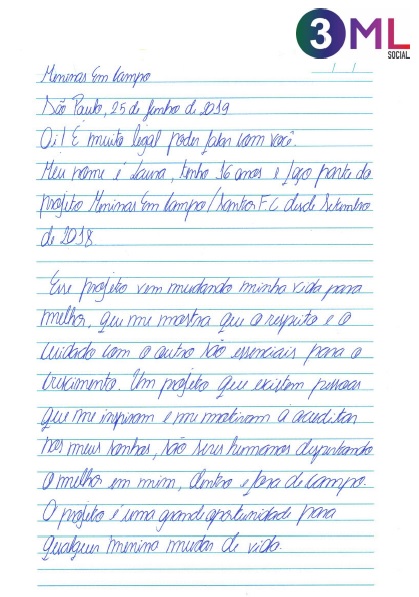 3ML
SOCIAL
Meninas Em Campo
São Paulo, 25 de junho de 2019
Oi! É muito legal poder falar com você.
Meu nome é Laura, tenho 16 anos e faço parte do
projeto Meninas Em Campo/Santos F.C desde Setembro
de 2018
Esse projeto vem mudando minha vida para
melhor, que me mostra que o respeito e o
cuidado com o outro são essenciais para o
crescimento. Um projeto que existem pessoas
que me inspiram e me motivam a acreditar
nos meus sonhos, são seres humanos despertando
o melhor em mim, dentro e fora de campo.
O projeto é uma grande oportunidade para
qualquer menina mudar de vida.